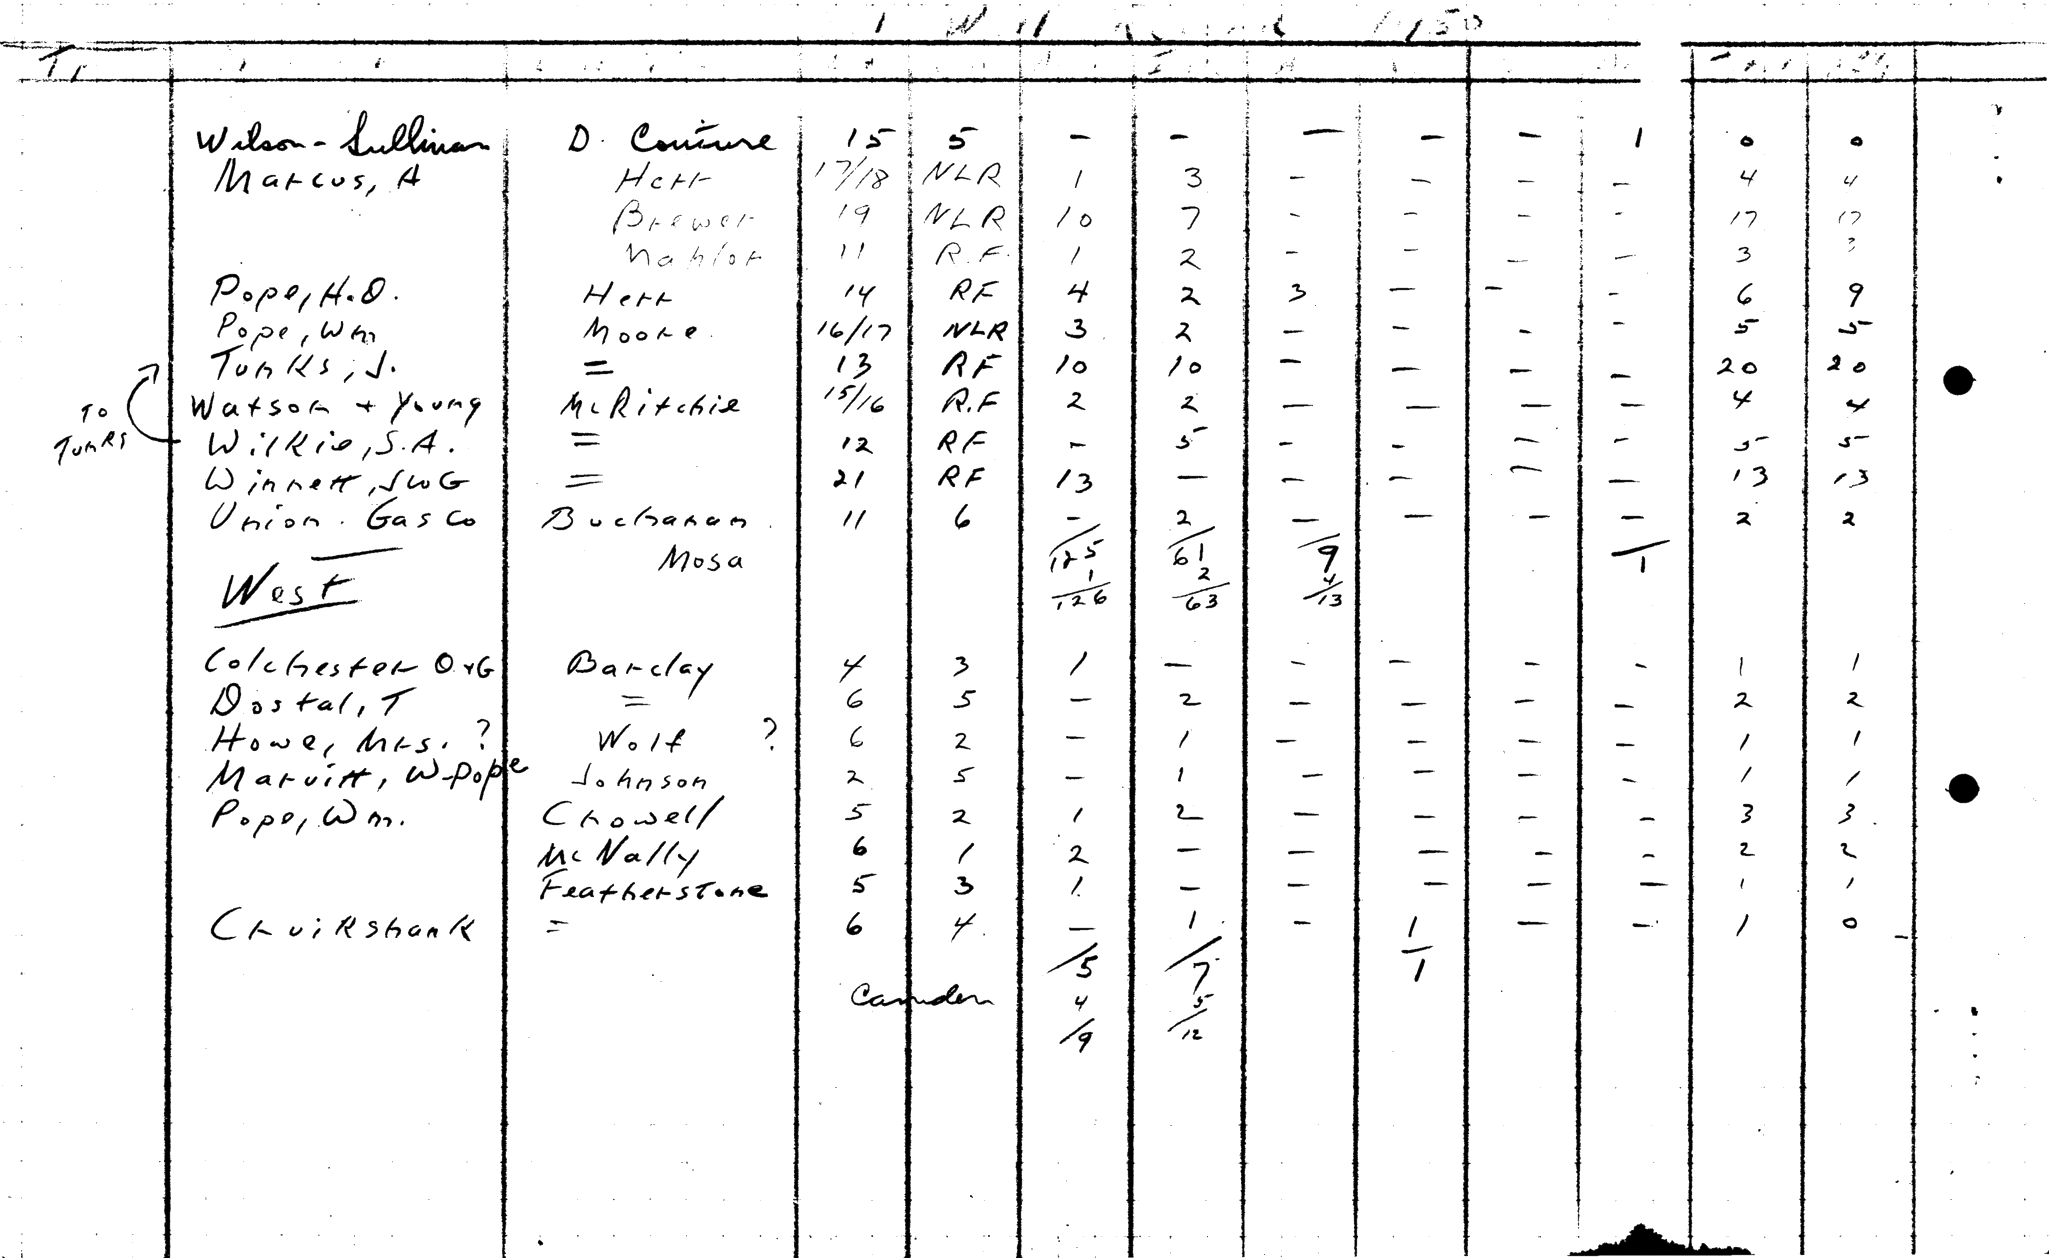 1950
Wilson - Sullivan D. Couture 15 5 - - - - - 1 0 0
Marcus, A Herr 17/18 NLR 1 3 - - - - 4 4
Brewer 19 NLR 10 7 - - - - 17 17
11 R.F. 1 2 - - - - 3 3
Pope, H.O. Herr 14 RF 4 2 3 - - - 6 9
Pope, Wm Moore 16/17 NLR 3 2 - - - - 5 5
Tunks, J. = 13 RF 10 10 - - - - 20 20
Watson + Young McRitchie 15/16 R.F 2 2 - - - - 4 4
To Tunks
Wilkie, S.A. = 12 RF - 5 - - - - 5 5
Winnett, JWG = 21 RF 13 - - - - - 13 13
Union Gas Co Buchanan 11 6 - 2 - - - - 2 2
Mosa 125 61 9 1
1 2 4
West 126 63 13
Colchester O+G Barclay 4 3 1 - - - - - 1 1
Dostal, T = 6 5 - 2 - - - - 2 2
Howe, Mrs. ? Wolf ? 6 2 - 1 - - - - 1 1
Marvitt, W-Pope Johnson 2 5 - 1 - - - - 1 1
Pope, Wm. Crowell 5 2 1 2 - - - - 3 3
McNally 6 1 2 - - - - - 2 2
Featherstone 5 3 1 - - - - - 1 1
Cruikshank = 6 4 - 1 - 1 - - 1 0
5 7 1
Camden 4 5
9 12